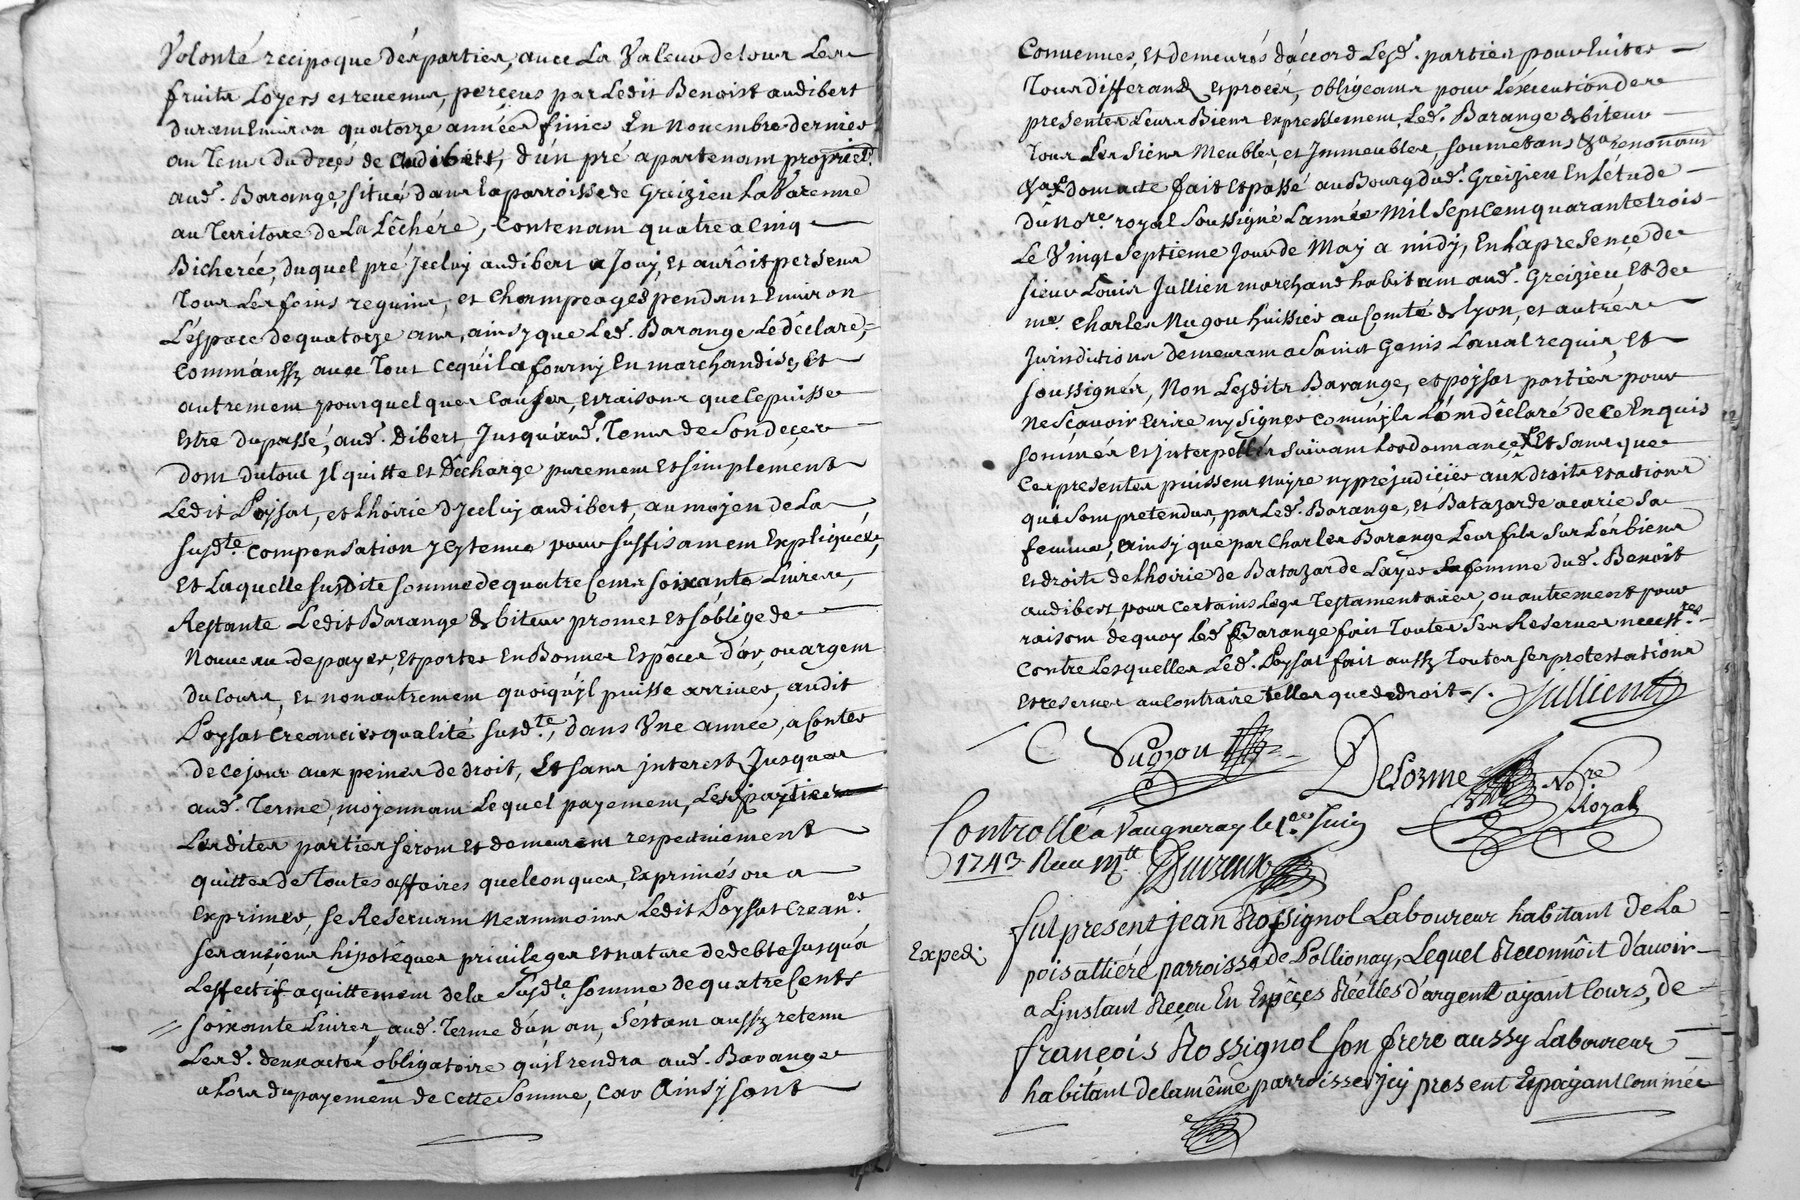 Volonté recipoque des parties, avec La Valeur de tous Les
fruits Loyers et revenus, perçeus par Ledit Benoist audibert
durant Environ quatorze années finies En Novembre dernier
au Tems du deçés de audibert, d'un pré apartenant propriet.
aud. Barange, situé dans La parroisse de Greizieu La Varenne
au Territoire de La Lêchére, Contenant quatre a Cinq
Bicherée, duquel pré Jceluy audibert a Jouy, Et auroit perseus
Tous Les foins reguins, et Champeages pendant Environ
L'éspace de quatorze ans, ainsy que Led. Barange Le déclare,
Comm'aussy avec Tout Ce qu'il a fourny En marchandises, Et
autrement pour quelques Causes, et raisons que Le puisse
Estre du passé, aud. Dibert Jusqu'aud. Tems de Son deçes
dont du tout Jl quitte Et Décharge purement Et simplement
Ledit Poysat, et Lhoirie d'Jceluy audibert, au moyen de La
susd.te Compensation y Contenue pour suffisament Expliquée,
Et Laquelle susdite somme de quatre Cents soixante Livres,
Restante Ledit Barange débiteur promet Et s'oblige de
Nouveau de payer, Et porter En Bonnes Espêces d'or, ou argent
du Cours, et non autrement quoiqu'jl puisse arriver, audit
Poysat Creancier qualité susd.te, dans Vne année, a Conter
de Ce jour aux peines de droit, Et sans jnterest Jusques
aud. Terme, moyennant Lequel payement, Les parties
Lesdites parties seront Et demeurent respectivement
quittes de Toutes affaires quelconques, Exprimés ou a
Exprimer, se Réservant Neanmoins Ledit Poysat Crean.er
ses anciens hipotéques privileges et nature de debte Jusqu'a
L'effectif aquittement de la Susd.te somme de quatre Cents
soixante Livres, aud. Terme d'un an, S'éstant aussy retenu
Lesd. deux actes obligatoire qu'il rendra aud. Barange
a Lors du payement de Cette Somme, Car Ainsy sont
Convenues, Et demeurés d'accord Lesd. parties pour Eviter
Tous differands Et procés, obligeants pour L'éxécution des
presentes Leurs Biens Expressément, Led. Barange débiteur
Tous Les Siens Meubles et Jmmeubles, soumettans &a renonçant
&a dont acte fait Et passé au Bourg dud. Greizieu En L'étude
du No.re royal Soussigné L'année Mil Sept Cent quarante trois
Le Vingt Septieme Jour de May a midy, En La presence de
sieur Louis Jullien marchand habitant aud. Greizieu Et de
me. Charles Nugou huissier au Comté de lyon, et autres
Jurisdictions demeurant a Saint Genis Laval requis, Et
soussignés, Non Lesdits Barange, et Poysat parties pour
Ne Sçavoir Ecrire ny signer comm'jls L'ont déclaré de Ce Enquis
sommés Et Jnterpellés suivant Lordonnance, Et Sans que
Ces presentes puissent Nuyre ny préjudicier aux droits Et actions
qui Sont pretendus, par Led. Barange, Et Batazarde acarie Sa
femme, Ainsy que par Charles Barange Leur fils Sur Les biens
Et droits de Lhoirie de Batazarde Layes femme dud. Benoit
audibert pour Certains Legs Testamentaires, ou autrement pour
raisont de quoy Led. Barange fait Toutes Ses Reserves necess.res
Contre Lesquelles Led. Poysat fait aussy Toutes Ses protestations
Et reserves au Contraire telles que de droit -/.
Jullien
C Nugou
Delorme No.re Royal
Controllé a Vaugneray le 1er Juin
1743 Receu
Exped.
fut present jean Rossignol Laboureur habitant de La
poisattiére parroisse de Pollionay, Lequel Reconnôit d'avoir
a Ljnstant Reçeu En Espéçes Réelles d'argent ayant Cours, de
françois Rossignol son frere aussy Laboureur
habitant de La même parroisse jcy present Et payant comme